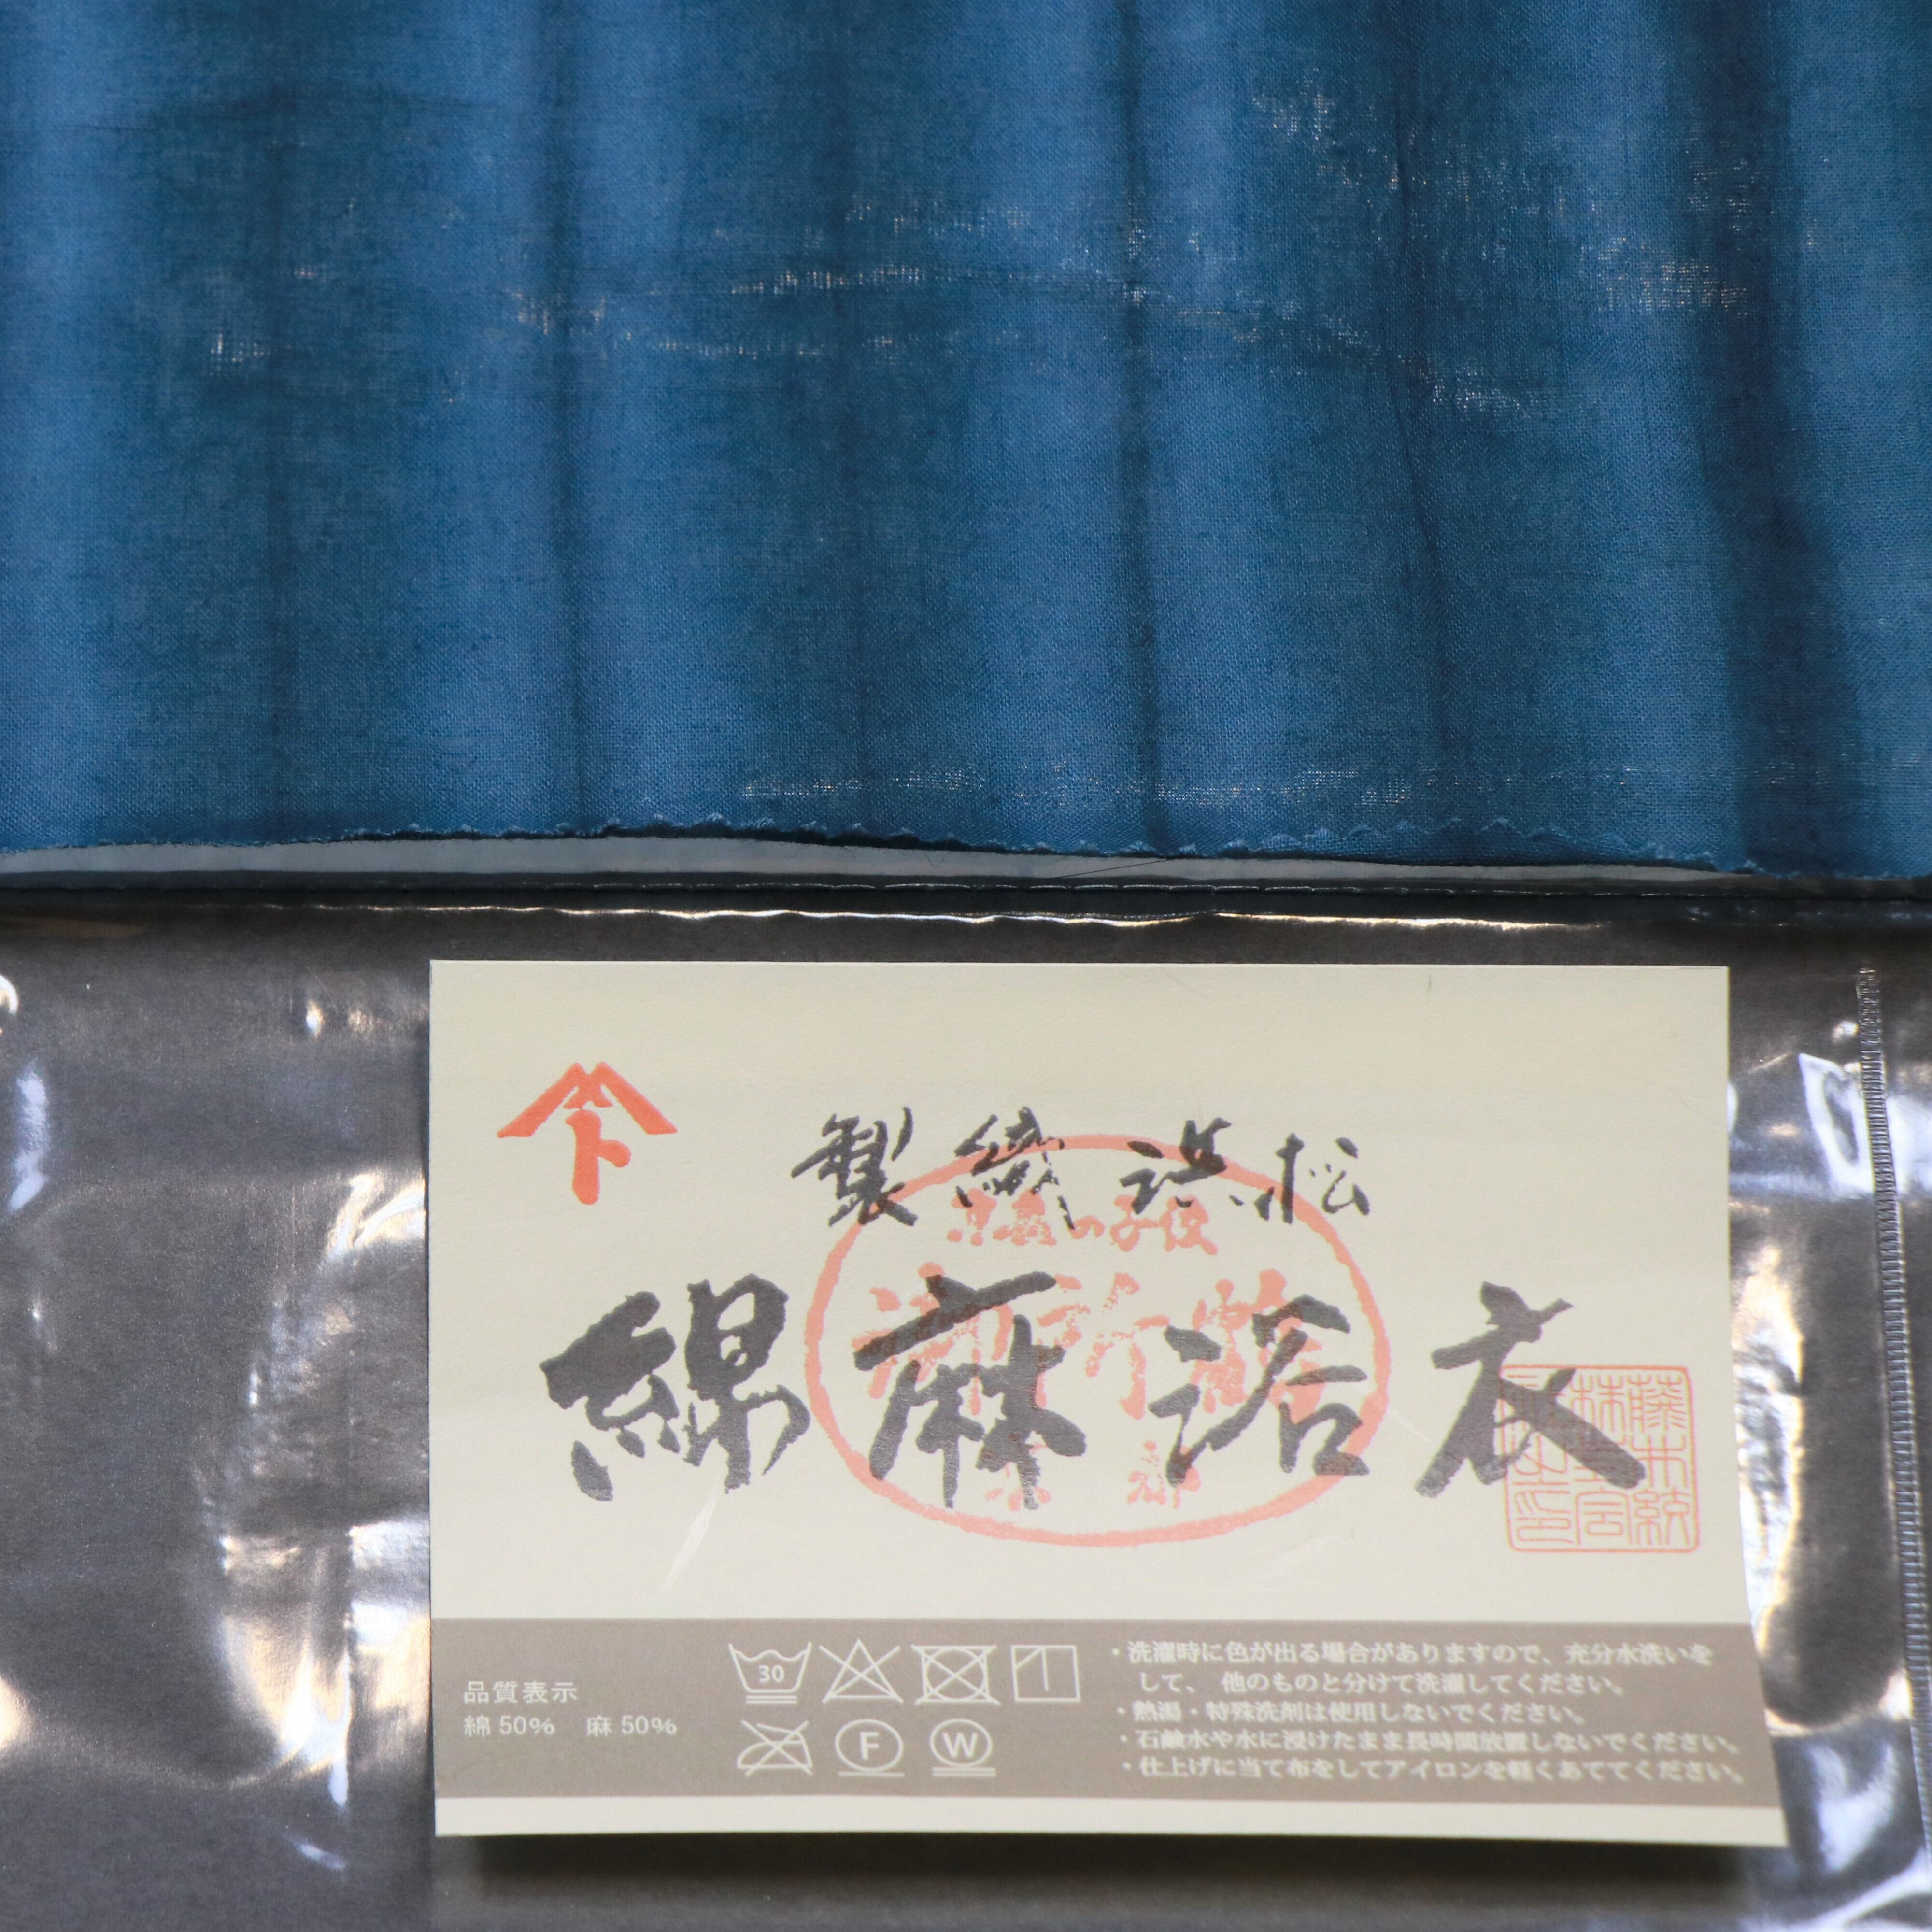 製織浜松
綿麻浴衣
品質表示
綿50% 麻50%
30
F
W
・洗濯時に色が出る場合がありますので、充分水洗いを
して、 他のものと分けて洗濯してください。
・熱湯・特殊洗剤は使用しないでください。
・石鹸水や水に浸けたまま長時間放置しないでください。
・仕上げに当て布をしてアイロンを軽くあててください。